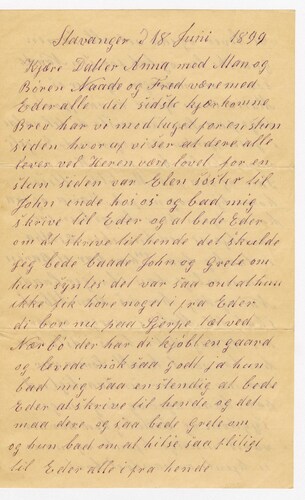 Stavanger d 18. Juni 1899
Kjære Datter Anna med Man og
Børen Naade og Fred være med
Eder alle det sidste kjærkomne
Brev har vi mod taget for en stun
siden hvor af vi ser at dere alle
lever vel Heren være lovet for en
stun seden var Elen søster til
John inde hos os og bad mig
skrive til Eder og at bede Eder
om at skrive til hende det skulde
jeg bede baade John og Grete om
hun syntes det var saa ont at hun
ikke fek høre noget i fra Eder
di bor nu paa Hjerpe tæt ved
Nærbø der har di kjøbt en gaard
og levede nok saa godt ja hun
bad mig saa enstendig at bede
Eder at skrive til hende og det
maa dere og saa bede Grete om
og hun bad om at hilse saa flitigt
til Eder alle i fra hende